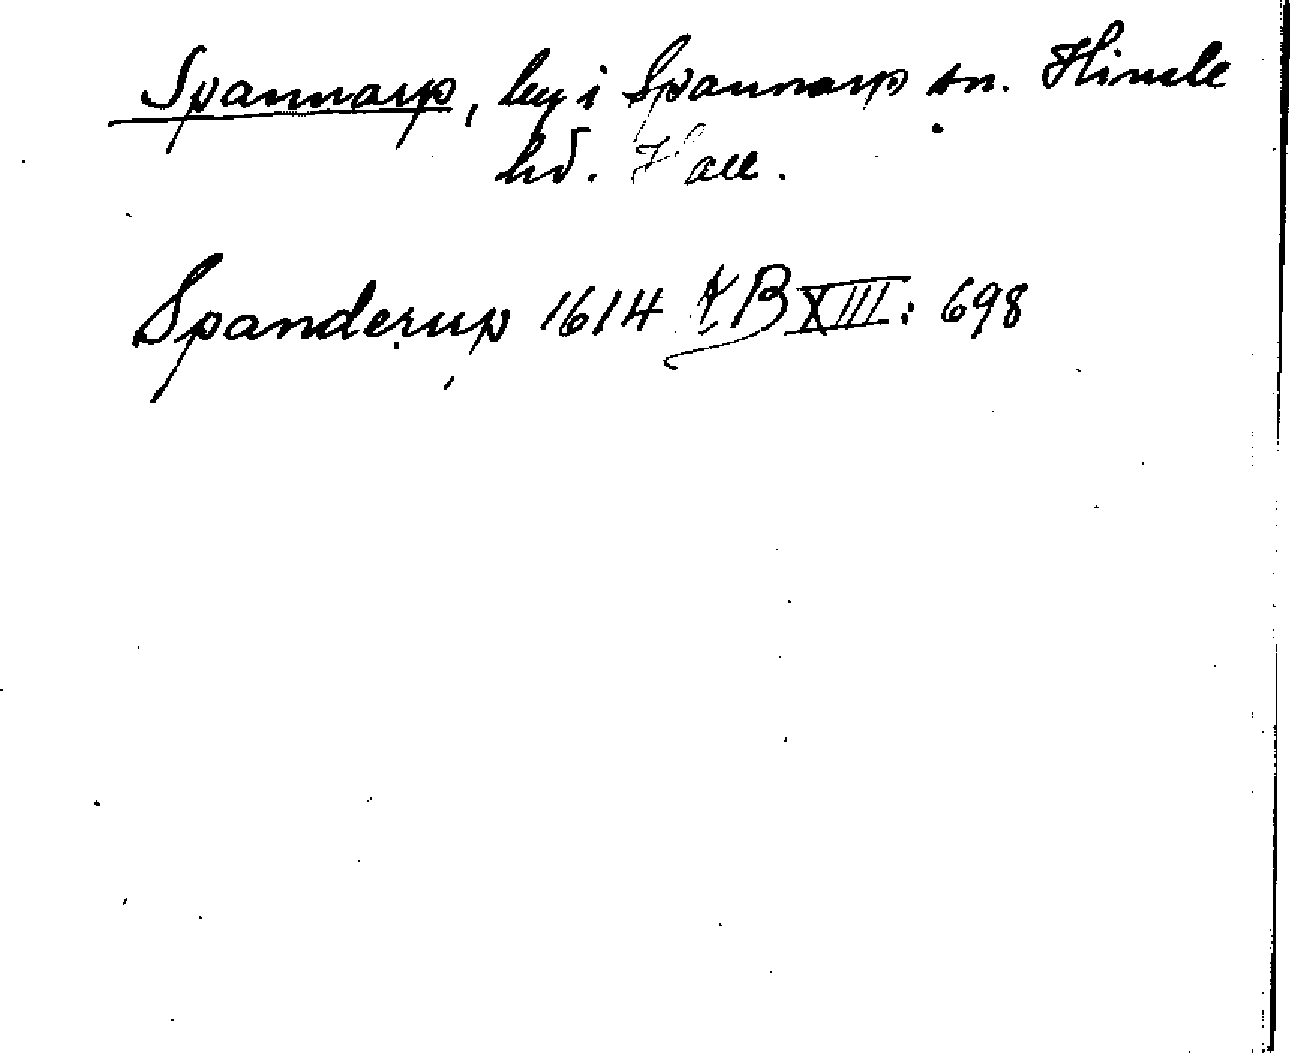 Spannarp, by i Spannarp sn. Himle
hd. Hall.
Spanderup 1614 ÆB XIII: 698